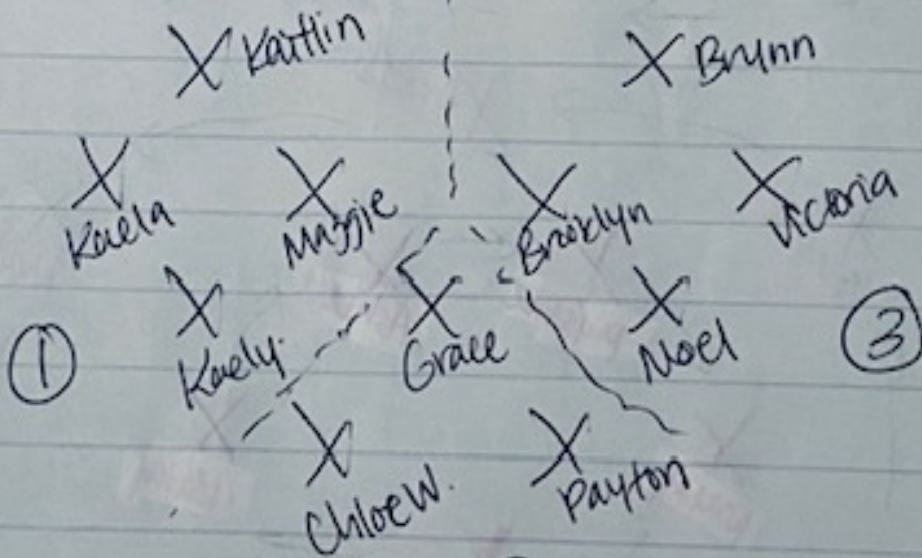 X Kaitlin
X Brynn
X X X X
Kaela Maggie Brooklyn Victoria
X X X
1 Kaely Grace Noel 3
X X
Chloe W. Payton